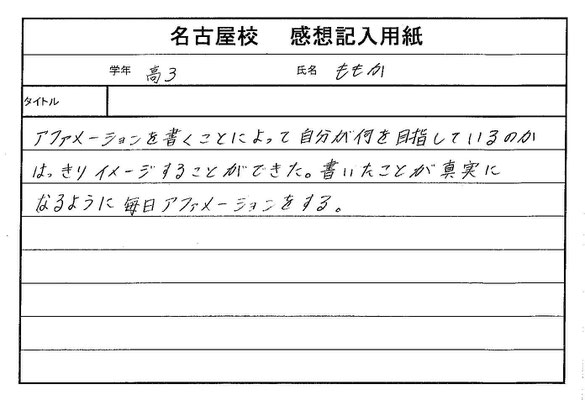 名古屋校 感想記入用紙
学年 高3 氏名 ももか
タイトル
アファメーションを書くことによって自分が何を目指しているのか
はっきりイメージすることができた。書いたことが真実に
なるように毎日アファメーションをする。